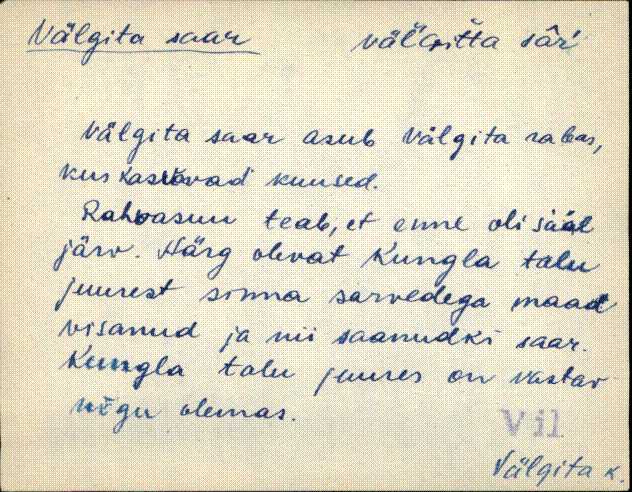 Välgita saar
väl'Gitta sār
Välgita saar asub Välgita rabas,
kus kasvavad kuused.
Rahvasuu teab, et enne oli sääl
järv. Härg olevat Kungla talu
juurest sinna sarvedega maad
visanud ja nii saanudki saar.
Kungla talu juures on vastav
nõgu olemas.
Vil
Välgita k.